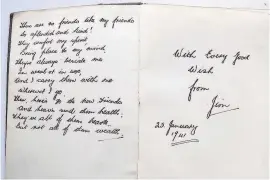 There are no friends like my friends
So splendid and kind!
They comfort my spirit,
bring peace to my mind,
always beside me
in
And I carry them with me
wherever I go.
Then, here's to the new friends
and heaven send them health,
all of them
but not all of them wealth.
With Every Good
Wish
from
Jim
20 January
1941